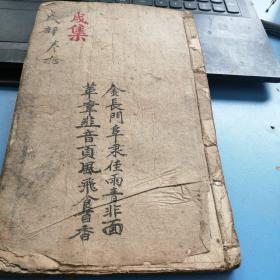 戌集
金長門阜隶隹雨青非面
革韋韭音頁風飛食首香